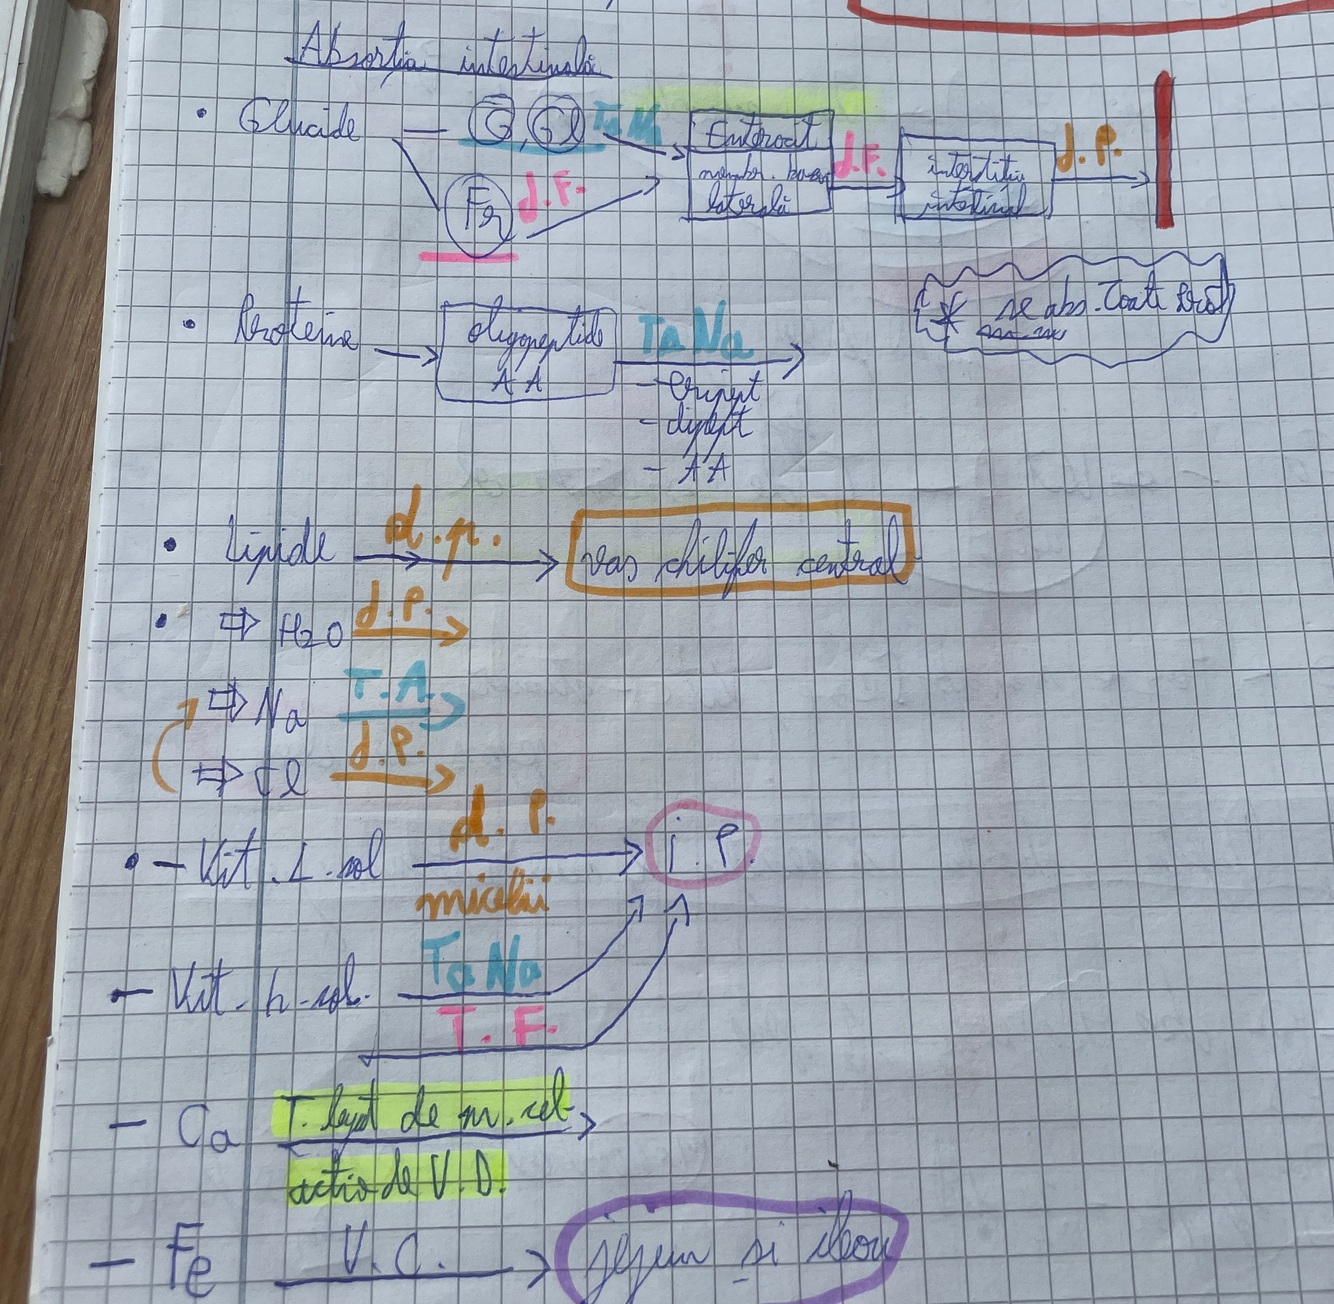 Absorția intestinală
• Glucide — G, Gl TaNa Enterocit d.F. interstițiu d.P.
membr. bazo laterală intestinal
Fr d.F.
* se abs. toate prot
• Proteine → oligopeptide TaNa
AA - tripept
- dipept
- AA
• Lipide d.p. → vas chilifer central
• ⇨ H2O d.P. →
⇨ Na T.A. →
⇨ Cl d.P. →
• - Vit. L. sol d.P. → j.P.
micelii
- Vit. h-sol. TaNa
T.F.
- Ca T. legat de m. cel →
activ. de V.D.
- Fe V.C. → jejun și ileon